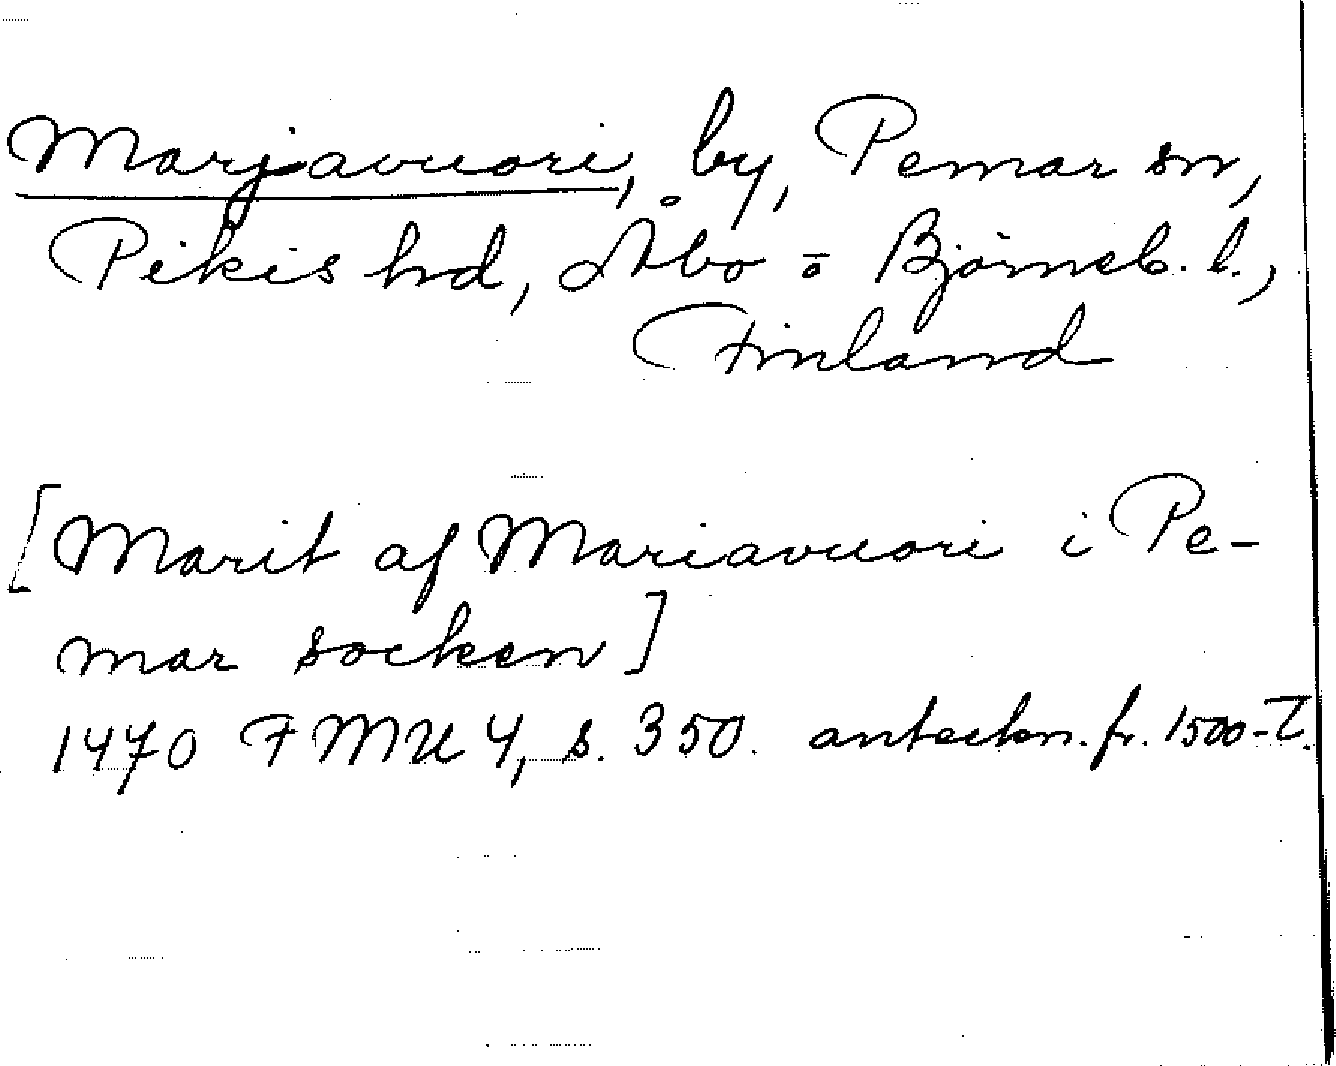 Marjavuori, by, Pemar sn,
Pikis hd, Åbo o Björneb. l.,
Finland
[Marit af Mariavuori i Pe-
mar socken]
1470 FMU 4, s. 350. anteckn. fr. 1500-t.